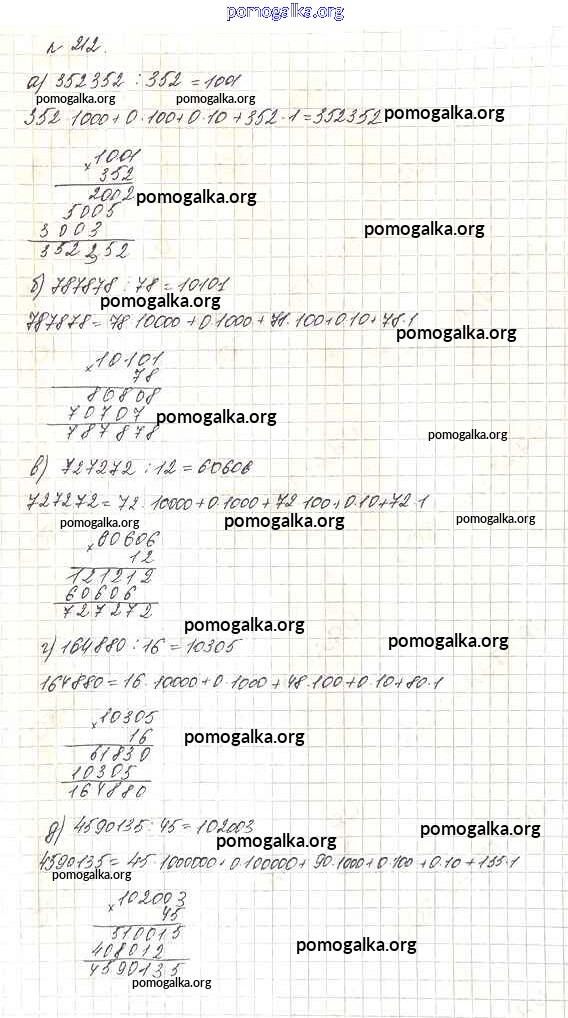 pomogalka.org
n 212.
а) 352352 : 352 = 1001
pomogalka.org pomogalka.org
352·1000+0·100+0·10+352·1=352352 pomogalka.org
×1001
352
2002 pomogalka.org
5005
pomogalka.org
3003
352352
б) 787878 : 78 = 10101
pomogalka.org
787878 = 78·10000+0·1000+78·100+0·10+78·1
pomogalka.org
×10101
78
80808
70707 pomogalka.org
787878
pomogalka.org
в) 727272 : 12 = 60606
727272 = 72·10000+0·1000+72·100+0·10+72·1
pomogalka.org pomogalka.org pomogalka.org
×60606
12
121212
60606
727272
pomogalka.org
г) 164880 : 16 = 10305 pomogalka.org
164880 = 16·10000+0·1000+48·100+0·10+80·1
×10305
16 pomogalka.org
61830
10305
164880
д) 4590135 : 45 = 102003 pomogalka.org
pomogalka.org
4590135 = 45·1000000+0·100000+90·1000+0·100+0·10+135·1
pomogalka.org
×102003
45
510015
408012 pomogalka.org
4590135
pomogalka.org